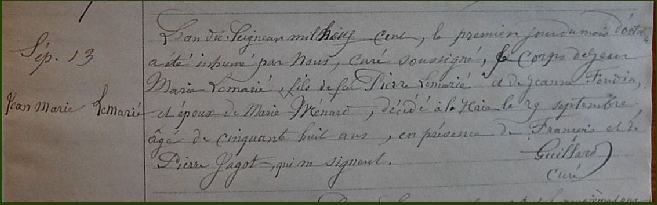 Sép. 13
Jean Marie Lemarié
L'an du Seigneur mil huit cent, le premier jour du mois d'oct.
a été inhumé par Nous, curé soussigné, le corps de Jean
Marie Lemarié, fils de feu Pierre Lemarié et de Jeanne
et époux de Marie Menard, décédé à la Haie le 29 septembre
âgé de cinquant huit ans, en présence de François et de
Pierre Jagot, qui n signent.
Guillard
curé